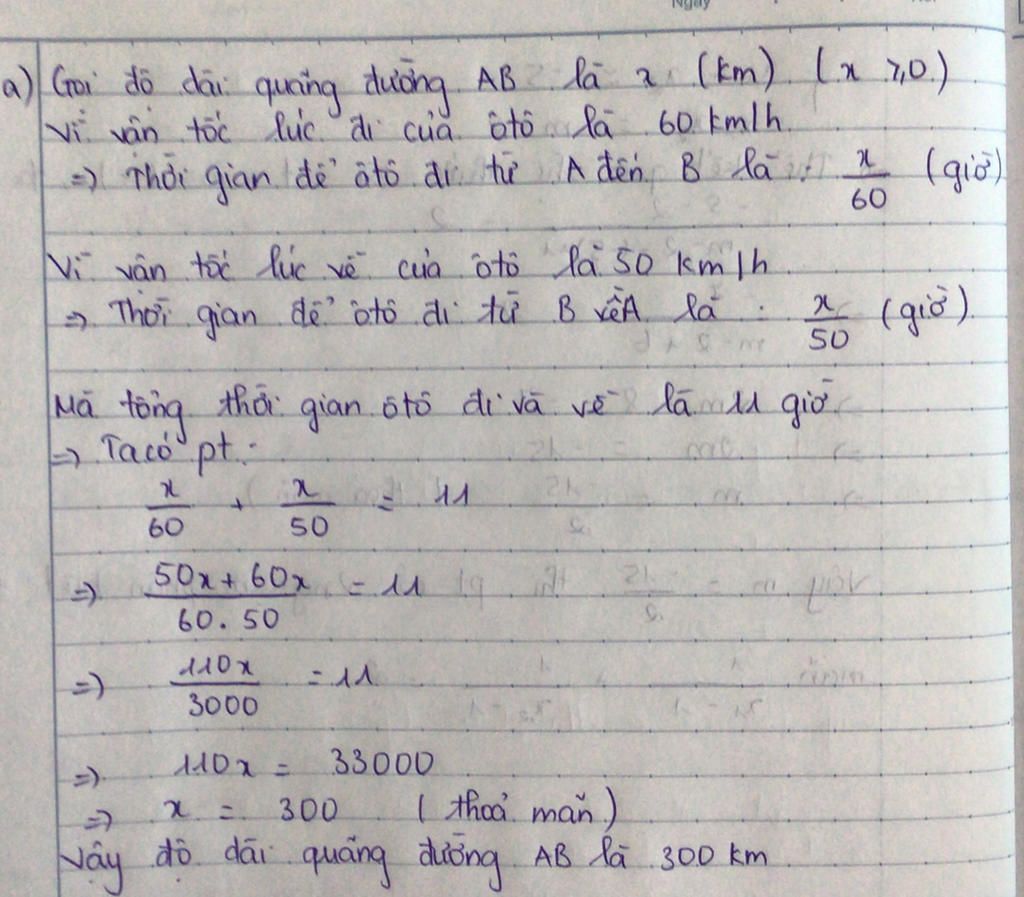 Ngày
a) Gọi độ dài quãng đường AB là x (km) (x ≥ 0)
Vì vận tốc lúc đi của ôtô là 60 km/h
=> Thời gian để ôtô đi từ A đến B là : x/60 (giờ)
Vì vận tốc lúc về của ôtô là 50 km/h
=> Thời gian để ôtô đi từ B về A là : x/50 (giờ)
Mà tổng thời gian ôtô đi và về là 11 giờ
=> Ta có pt :
x/60 + x/50 = 11
=> (50x + 60x)/(60.50) = 11
=> 110x/3000 = 11
=> 110x = 33000
=> x = 300 (thoả mãn)
Vậy độ dài quãng đường AB là 300 km